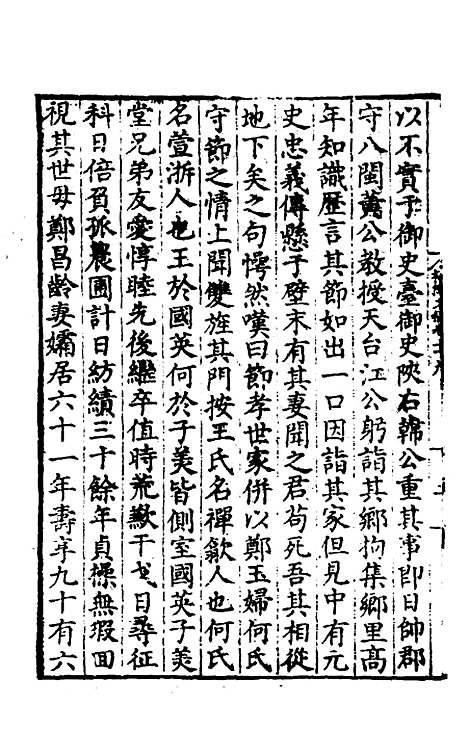 以不實予御史臺御史陝右韓公重其事即日帥郡
守八閩薦公教授天台江公躬詣其鄉拘集鄉里高
年知識歷言其節如出一口因詣其家但見中有元
史忠義傳懸于壁末有其妻聞之君苟死吾其相從
地下矣之句愕然嘆曰節孝世家併以鄭玉婦何氏
守節之情上聞雙旌其門按王氏名禪歙人也何氏
名萱浙人也王於國英何於子美皆側室國英子美
堂兄弟友愛惇睦先後繼卒值時荒歉干戈日尋征
科日倍負孤襄圃計日紡績三十餘年貞操無瑕回
視其世母鄭昌齡妻孀居六十一年壽年九十有六